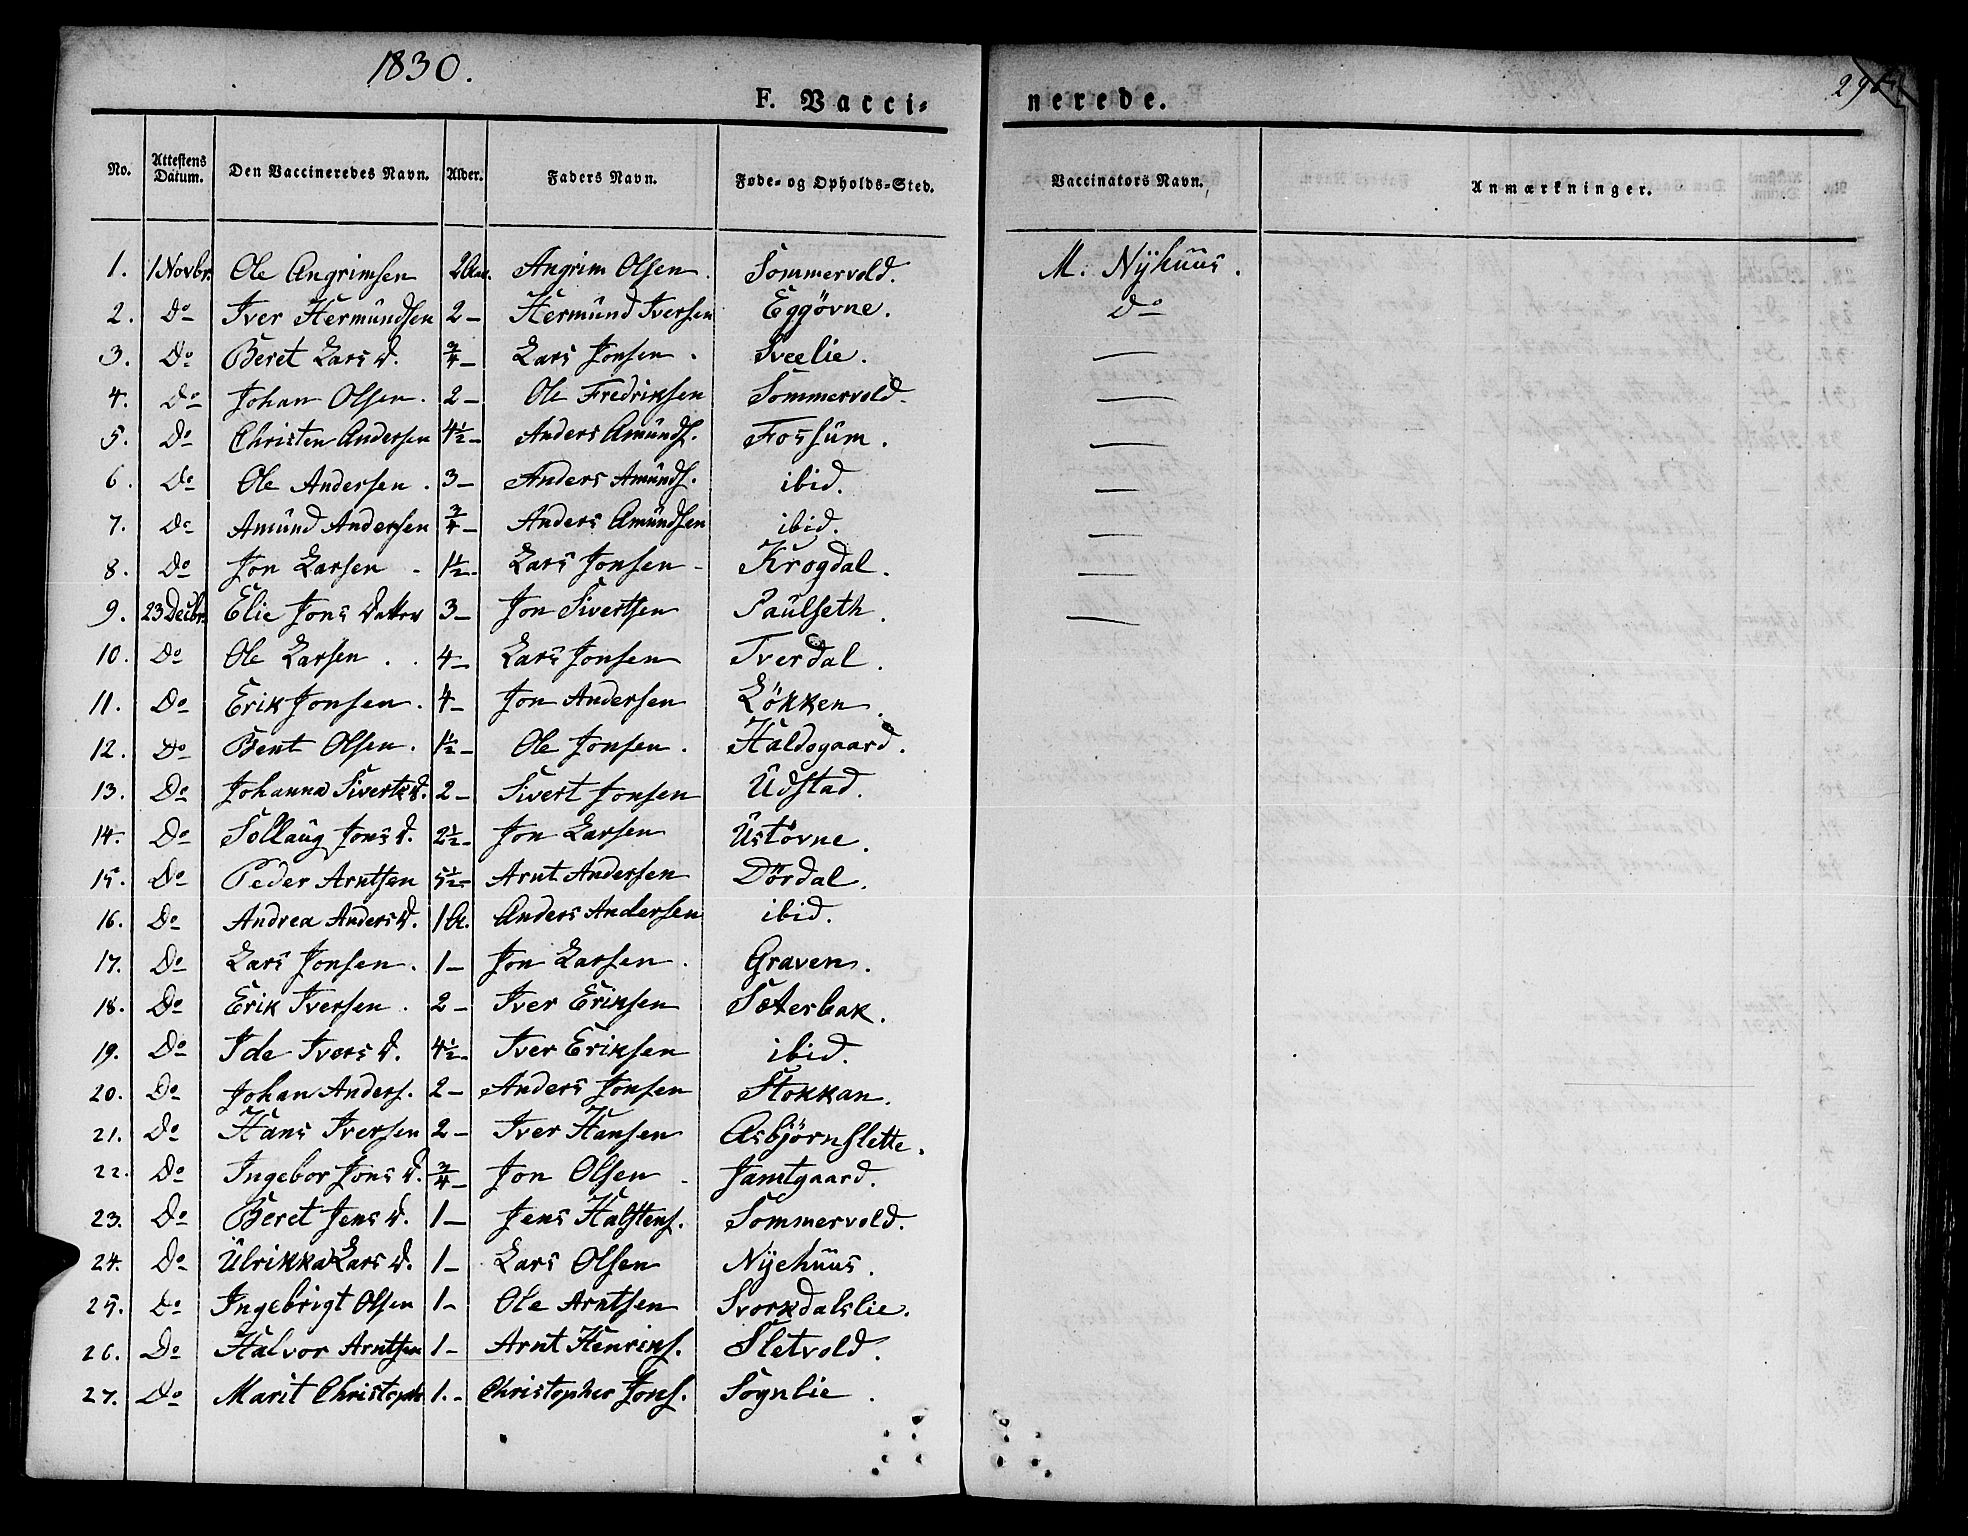 1830.
F. Vacci-
nerede.
No. Attestens Datum. Den Vaccineredes Navn. Alder. Faders Navn. Føde- og Opholds-Sted. Vaccinators Navn. Anmærkninger.
1. 1 Novbr. Ole Angrimsen 2 Aar. Angrim Olsen. Sommervold. M: Nÿhuus.
2. Do Iver Hermundsen 2 – Hermund Iversen Eggövne. Do
3. Do Beret Lars d. 3/4 – Lars Jonsen. Sveelie. —
4. Do Johan Olsen. 2 – Ole Fredriksen Sommervold. —
5. Do Christen Andersen 4½ – Anders Amunds. Fossum. —
6. Do Ole Andersen. 3 – Anders Amunds. ibid. —
7. Do Amund Andersen 3/4 – Anders Amundsen ibid. —
8. Do Jon Larsen 1½ – Lars Jonsen Krogdal. —
9. 23 Decbr. Elie Jons datter 3 – Jon Sivertsen Paulseth. —
10. Do Ole Larsen. 4 – Lars Jonsen Tverdal.
11. Do Erik Jonsen. 4 – Jon Andersen Lökken.
12. Do Bent Olsen. 1½ – Ole Jonsen. Haldogaard.
13. Do Johanna Siverts d. 2 – Sivert Jonsen Udstad.
14. Do Sollaug Jons d. 2½ – Jon Larsen Ustövne.
15. Do Peder Arntsen 5½ – Arnt Andersen Dördal.
16. Do Andrea Anders d. 1 A. Anders Andersen ibid.
17. Do Lars Jonsen. 1 – Jon Larsen. Graven.
18. Do Erik Iversen. 2 – Iver Eriksen Sæterbak.
19. Do Ide Ivers d. 4½ – Iver Eriksen ibid.
20. Do Johan Anders. 2 – Anders Jonsen Stokkan.
21. Do Hans Iversen 2 – Iver Hansen Asbjörnslette.
22. Do Ingebor Jons d. 3/4 – Jon Olsen Jamtgaard.
23. Do Beret Jens d. 1 – Jens Halstens. Sommervold.
24. Do Ulrikka Lars d. 1 – Lars Olsen Nÿehuus.
25. Do Ingebrigt Olsen 1 – Ole Arntsen Svorkdalslie.
26. Do Halvor Arntsen 1 – Arnt Henriks. Sletvold.
27. Do Marit Christoph 1. – Christopher Jons. Sognlie.